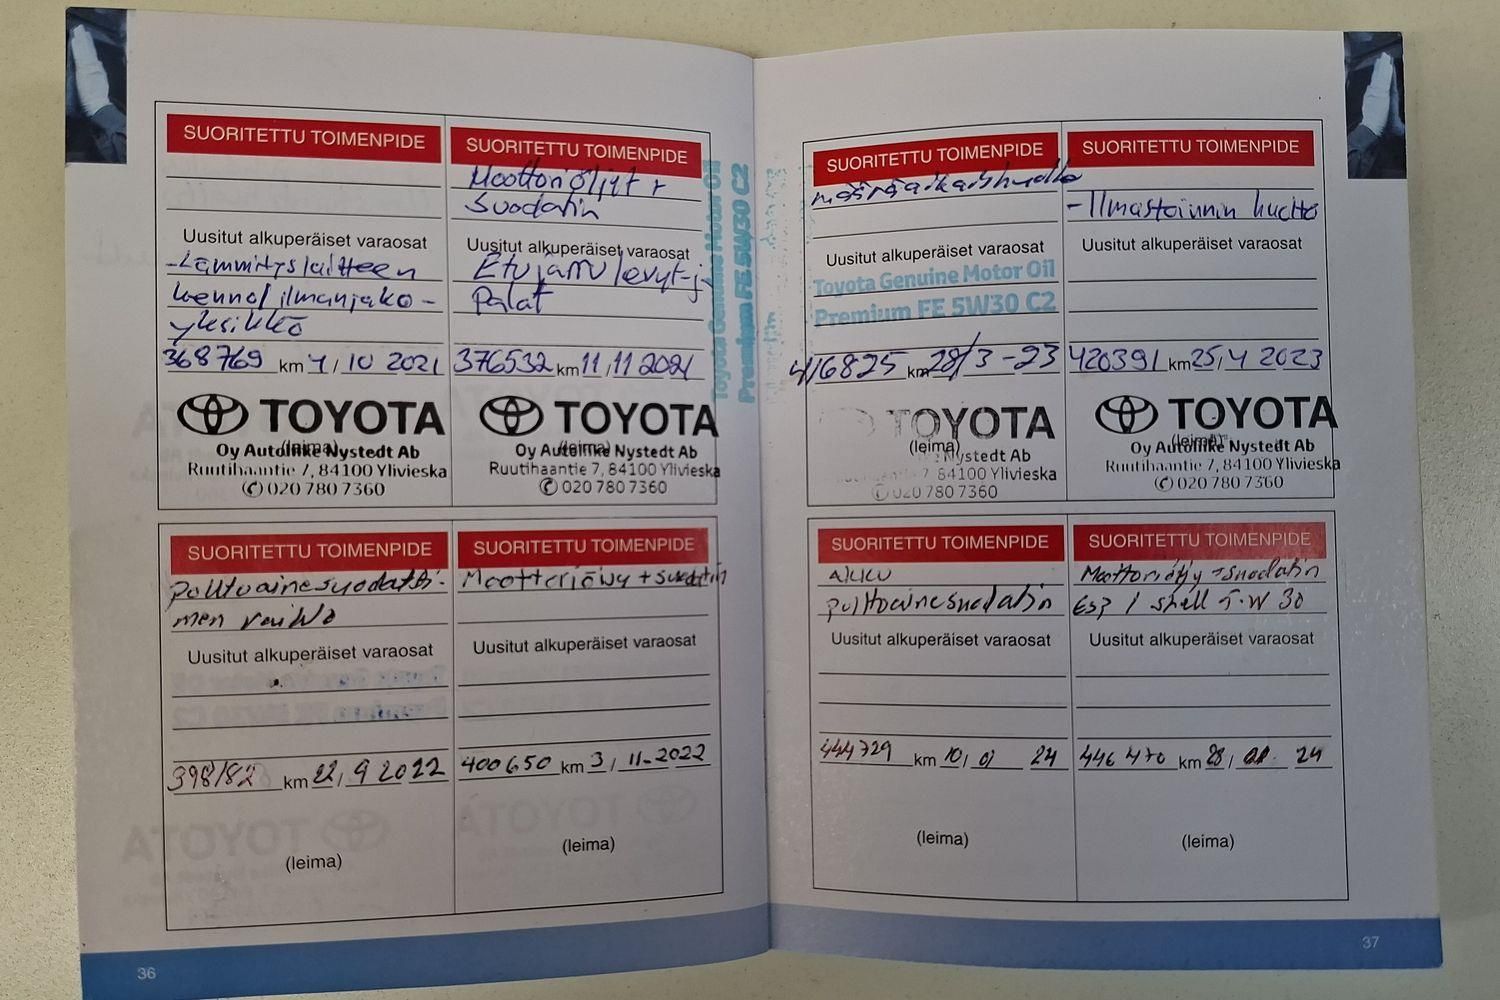 SUORITETTU TOIMENPIDE
Uusitut alkuperäiset varaosat
-Lämmityslaitteen
kenno/ilmanjako-
yksikkö
368769 km 7/10 2021
TOYOTA
(leima)
Oy Autoliike Nystedt Ab
Ruutihaantie 7, 84100 Ylivieska
020 780 7360
SUORITETTU TOIMENPIDE
Moottoriöljyt +
Suodatin
Uusitut alkuperäiset varaosat
Etujarrulevyt-j
Palat
376532 km 11/11 2021
TOYOTA
(leima)
Oy Autoliike Nystedt Ab
Ruutihaantie 7, 84100 Ylivieska
020 780 7360
Toyota Genuine Motor Oil
Premium FE 5W30 C2
SUORITETTU TOIMENPIDE
polttoainesuodatti-
men vaihto
Uusitut alkuperäiset varaosat
398182 km 22/9 2022
(leima)
SUORITETTU TOIMENPIDE
Moottoriöljy + suodatin
Uusitut alkuperäiset varaosat
400650 km 3/11-2022
(leima)
36
SUORITETTU TOIMENPIDE
määräaikaishuolto
Uusitut alkuperäiset varaosat
Toyota Genuine Motor Oil
Premium FE 5W30 C2
416825 km 28/3-23
TOYOTA
(leima)
Nystedt Ab
7, 84100 Ylivieska
020 780 7360
SUORITETTU TOIMENPIDE
-Ilmastoinnin huolto
Uusitut alkuperäiset varaosat
420391 km 25/4 2023
TOYOTA
(leima)
Oy Autoliike Nystedt Ab
Ruutihaantie 7, 84100 Ylivieska
020 780 7360
SUORITETTU TOIMENPIDE
AKKU
polttoainesuodatin
Uusitut alkuperäiset varaosat
444729 km 10/01 24
(leima)
SUORITETTU TOIMENPIDE
Moottoriöljy + suodatin
ESP / shell 5-W 30
Uusitut alkuperäiset varaosat
446470 km 28/01 24
(leima)
37